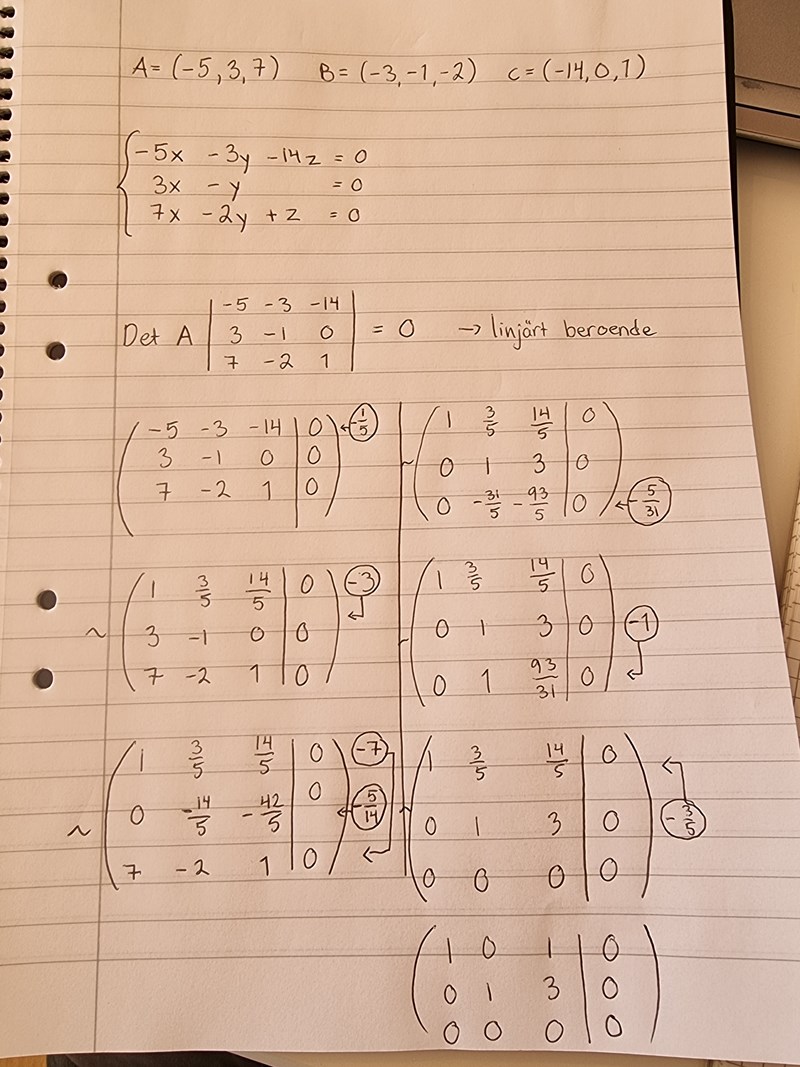 A = (-5, 3, 7) B = (-3, -1, -2) C = (-14, 0, 1)
-5x - 3y - 14z = 0
3x - y = 0
7x - 2y + z = 0
Det A | -5 -3 -14 |
| 3 -1 0 | = 0 → linjärt beroende
| 7 -2 1 |
( -5 -3 -14 | 0 ) ← -1/5
( 3 -1 0 | 0 )
( 7 -2 1 | 0 )
~ ( 1 3/5 14/5 | 0 ) -3
( 3 -1 0 | 0 ) ←
( 7 -2 1 | 0 )
~ ( 1 3/5 14/5 | 0 ) -7
( 0 -14/5 -42/5 | 0 ) ← -5/14
( 7 -2 1 | 0 ) ←
~ ( 1 3/5 14/5 | 0 )
( 0 1 3 | 0 )
( 0 -31/5 -93/5 | 0 ) ← -5/31
~ ( 1 3/5 14/5 | 0 )
( 0 1 3 | 0 ) -1
( 0 1 93/31 | 0 ) ←
~ ( 1 3/5 14/5 | 0 ) ←
( 0 1 3 | 0 ) -3/5
( 0 0 0 | 0 )
( 1 0 1 | 0 )
( 0 1 3 | 0 )
( 0 0 0 | 0 )